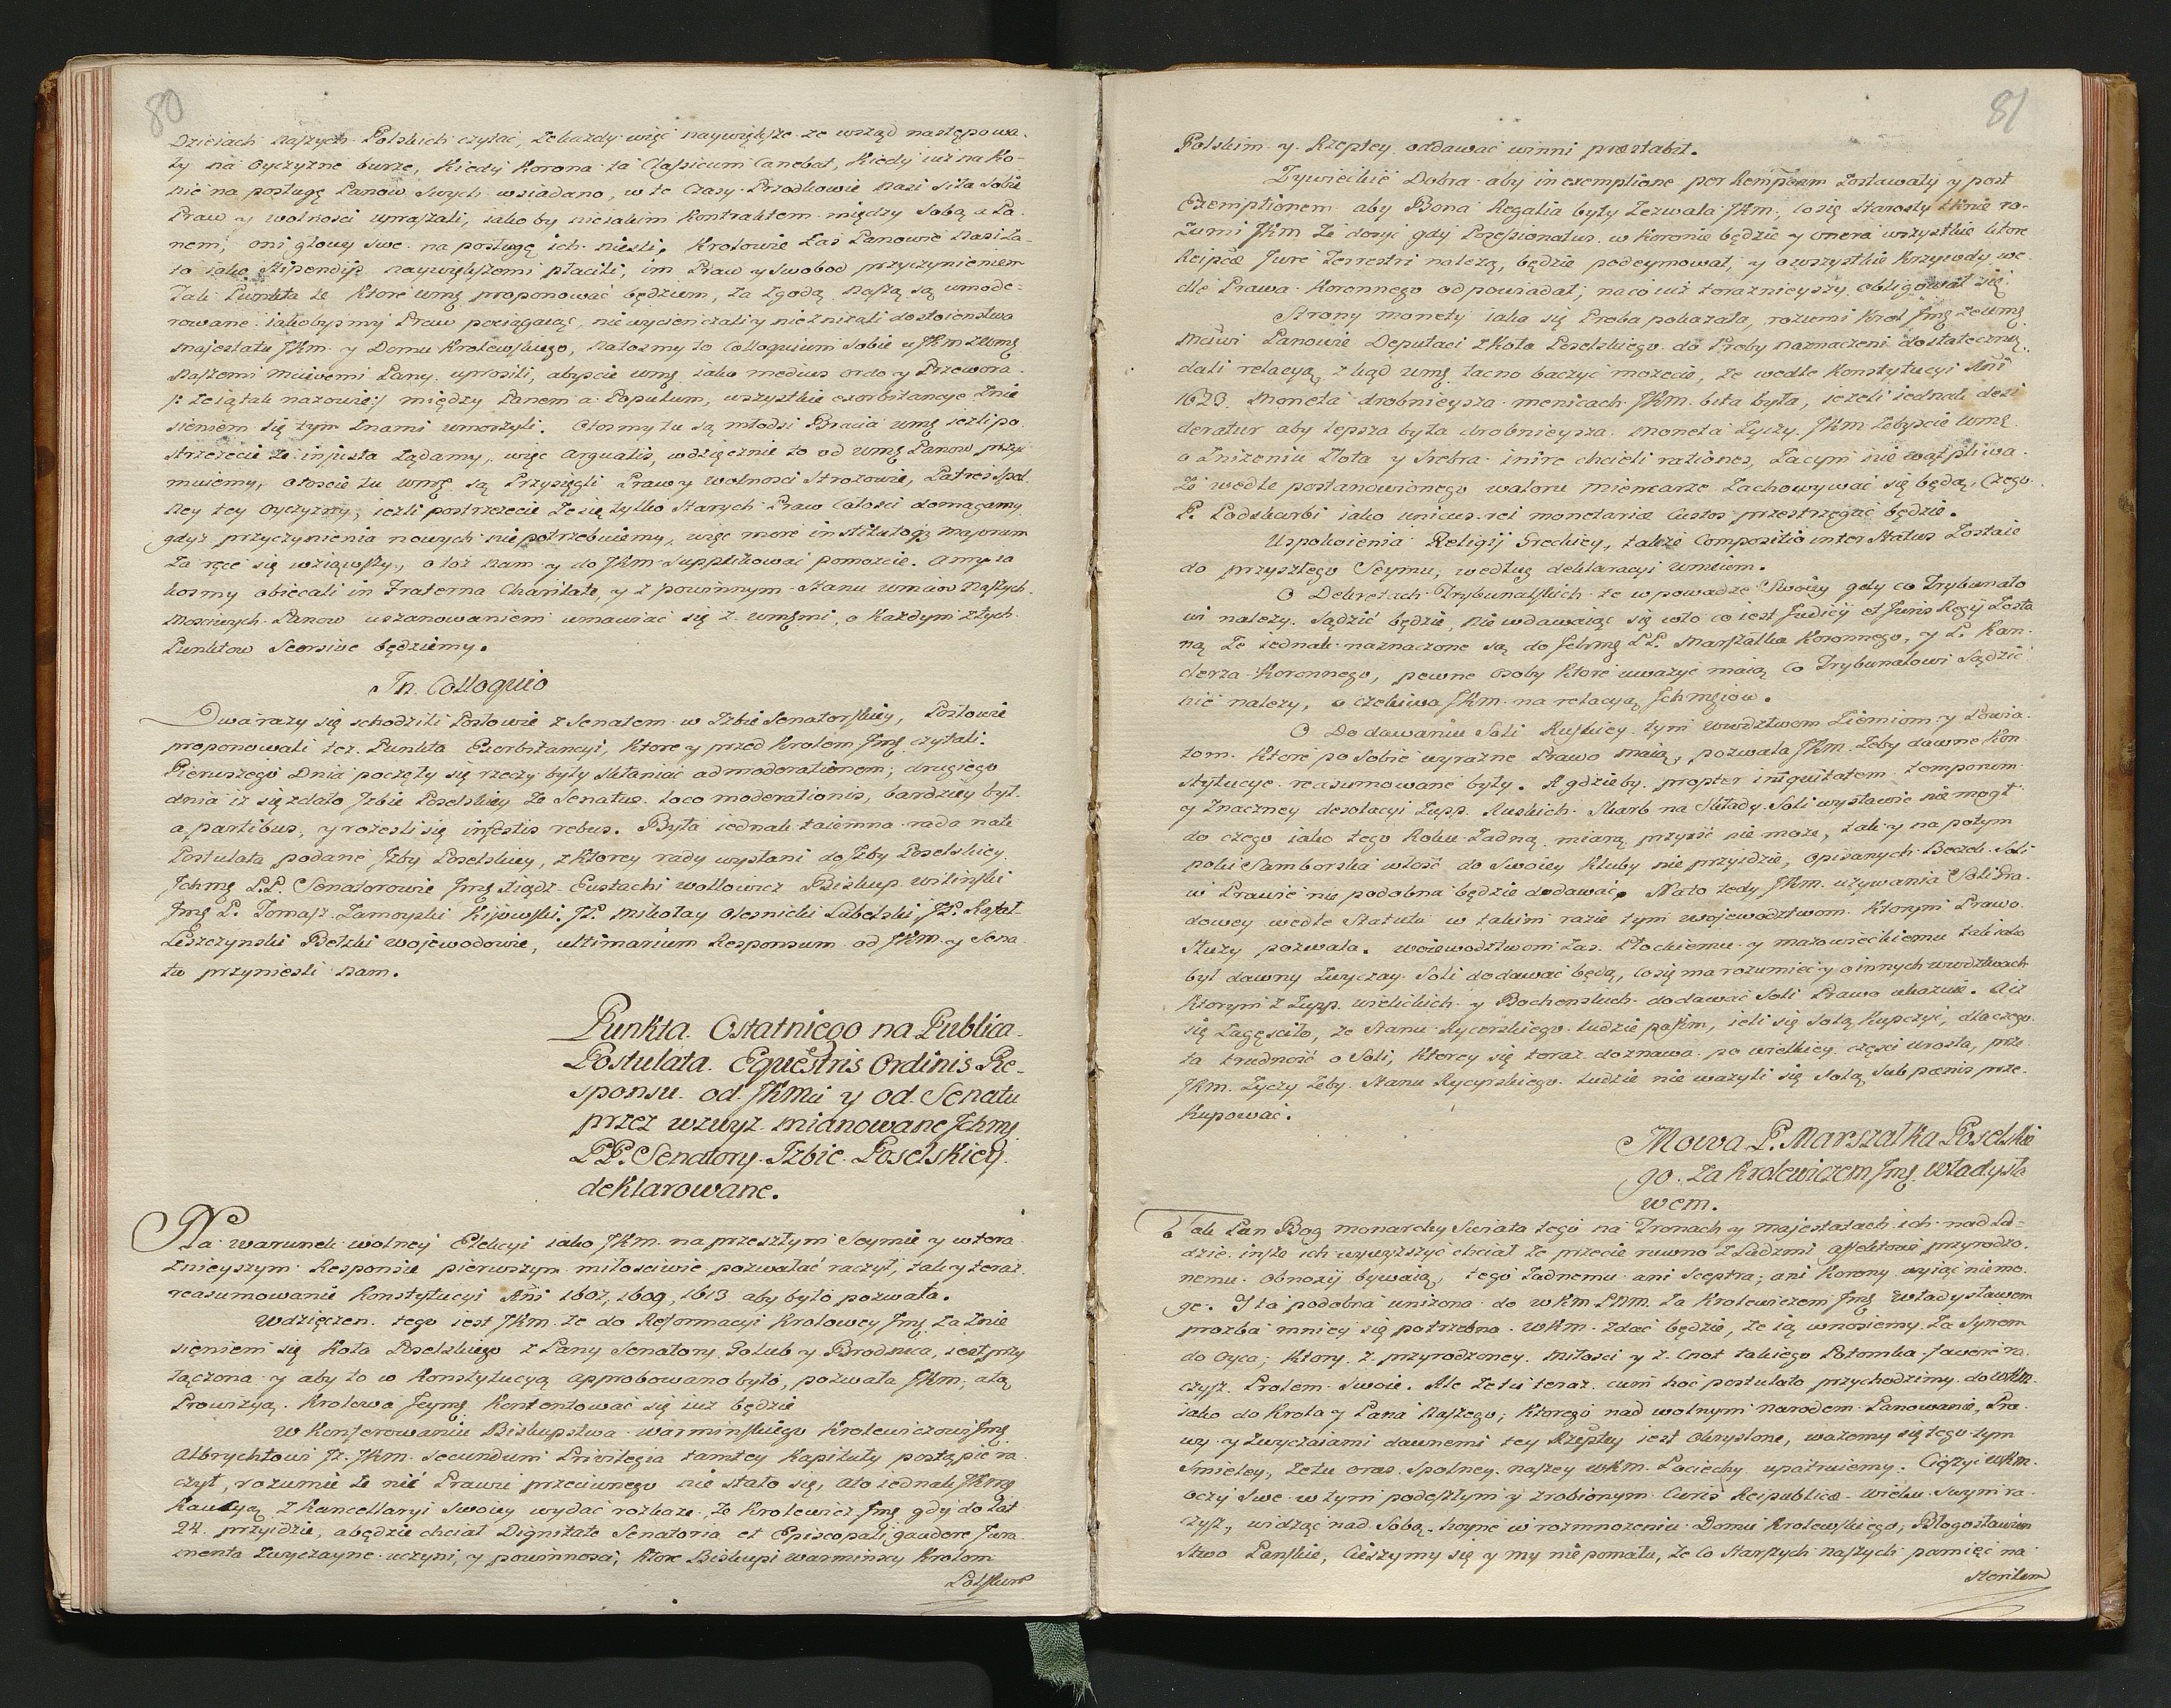 80
Dzieiach naszych Polskich czytać, żekażdy więc naywiększe ze wsząd następowa-
ły na Oyczyznę burze, Kiedy Korona ta Classicum Canebat, Kiedy iuż na Ko-
nie na posługę Panow Swych wsiadano, w te czasy Przodkowie nasi siła Sobie
Praw y wolnosci upraszali, iako by nieiakim Kontraktem między Sobą a Pa-
nem, oni głowy swe na posługę ich nieśli, Krolowie zaś Panowie nasi za
to iako Stipendijs naywiększemi płacili, im Praw y Swobod przyczynieniem
Tak Punkta te Ktore wmę proponować będziem, za zgodą naszą są umode-
rowane iakobysmy Praw pociągaiąc, nie wycienczali y nie zniżali dostoienstwa
Majestatu JKm y Domu Krolewskiego, natosmy to Colloquium Sobie u JKm z wmę
naszemi Mciwemi Pany uprosili, abyscie wmę iako medius ordo y Przewora
/: że ią tak nazowię:/ między Panem a Populum, wszystkie exorbitancye znie
sieniem się tym znami umorzyli. Otosmy tu są młodsi Bracia wmę ieżli po
strzeżecie że injusta żądamy, więc arguatis, wdzięcznie to od wmę Panow przy
muiemy, otoscie tu wmę są Przysięgli Praw y wolnosci Strożowie, Patres Spol
ney tey oyczyzny, ieżli postrzeżecie że się tylko Starych Praw całosci domagamy
gdyż przyczynienia nowych nie potrzebuiemy, więc more institutoq majorum
za ręce się wziąwszy, otoż nam y do JKm Supplikować pomożcie. Amy ia
kosmy obiecali in Fraterna Charitate, y z powinnym Stanu wmciow naszych
Mosciwych Panow uszanowaniem umawiać się z wmęmi, o Każdym z tych
Punktow Seorsive będziemy.
In Colloquio
Dwa razy się schodzili Posłowie z Senatem w Izbie Senatorskiey, Posłowie
proponowali tez Punkta Exorbitancyi, Ktore y przed Krolem Jmę czytali.
Pierwszego Dnia poczęły się rzeczy były skłaniać ad moderationem; drugiego
dnia iż się zdało Izbie Poselskiey że Senatus loco moderationis, bardziey był
a partibus, y rozesli się infectis rebus. Była iednak taiemna rada nate
Postulata podane Izby Poselskiey, z Ktorey rady wysłani do Izby Poselskiey
Jchmę PP. Senatorowie Jmę Xiądz Eustachi wołłowicz Biskup wilinski
Jmę P. Tomasz Zamoyski Kijowski, JP. Mikołay Olesnicki Lubelski JP. Rafał
Leszczynski Bełzki wojewodowie, ultimarium Responsum od JKm y Sena
tu przyniesli nam.
Punkta Ostatniego na Publica
Postulata Equestris Ordinis Re-
sponsu od JKMci y od Senatu
przez wzwyż mianowane Jchmę
PP. Senatory Izbie Poselskiey
deklarowane.
Na warunek wolney Elekcyi iako JKm na przeszłym Seymie y w tera
znieyszym Responsie pierwszym miłosciwie pozwalać raczył, tak y teraz
reasumowanie Konstytucyi Añi 1607, 1609, 1613 aby było pozwala.
Wdzięczen tego iest JKm że do Reformacyi Krolowey Jmę za znie
sieniem się Koła Poselskiego z Pany Senatory Golub y Brodnica, iest przy
łączona y aby to w Konstytucyą approbowano było, pozwala JKm, atą
Prowizyą Krolowa Jeymę Kontentować się iuż będzie
W Konferowaniu Biskupstwa warminskiego Krolewiczowi Jmę
Albrychtowi Iż JKm secundum Privilegia tamtey Kapituły postąpić ra
czył, rozumie że nic Prawu przeciwnego nie stało się, ato iednak JKmę
Kaucyą z Kancellaryi Swoiey wydać rozkaże, że Krolewicz Jmę gdy do Lat
24 przyidzie, abędzie chciał Dignitate Senatoria et Episcopali gaudere Jura
menta zwyczayne uczyni, y powinnosci, Ktore Biskupi warminscy Krolom
Polskim
81
Polskim y Rzeptey oddawać winni praestabit.
Żywieckie Dobra aby in exemptione per Rempcam zostawały y post
Exemptionem aby Bona Regalia były zezwala JKm, co się Starosty tknie ro-
zumi JKm że dosyć gdy Possessionatus w Koronie będzie y onera wszystkie ktore
Reipcae Jure Terrestri należą, będzie podeymował, y o wszystkie Krzywdy we
dle Prawa Koronnego odpowiadał, na co iuż teraznieyszy obligował się.
Strony monety iaka się Proba pokazała, rozumi Krol Jmę że wmę
Mciwi Panowie Deputaci z Koła Poselskiego do Proby naznaczeni dostateczną
dali relacyą, z kąd wmę łacno baczyć możecie, że wedle Konstytucyi Añi
1623. Moneta drobnieysza menicach JKm bita była, ieżeli iednak desi
deratur aby lepsza była drobnieysza moneta życzy JKm żebyscie wmę
o zniżeniu złota y Srebra inire chcieli rationes, zaczym nie wątpliwa
że wedle postanowionego waloru Mincarze zachowywać się będą, czego
P. Podskarbi iako unicus rei monetariae Custos przestrzegać będzie.
Uspokoienia Religij Greckiey, także Compositio inter Status zostaie
do przyszłego Seymu, według deklaracyi wmciom.
O Dekretach Trybunalskich te w powadze Swoiey gdy co Trybunało
wi należy sądzić będzie, nie wdawaiąc się wto co iest Judicij et Juris Regij zosta
ną że iednak naznaczone są do Jchmę PP. Marszałka Koronnego, y P. Kan-
clerza Koronnego, pewne osoby ktore uważyć maią co Trybunałowi sądzić
nie należy, oczekiwa JKm na relacyą Jchmęiow.
O Dodawaniu Soli Ruskiey tym wwdztwom Ziemiom y Powia
tom Ktore po sobie wyrażne Prawo maią, pozwala JKm żeby dawne Kon
stytucye reassumowane były. A gdzieby propter iniquitatem temporum
y znaczney desolacyi Zupp Ruskich Skarb na Składy Soli wystawić nie mogł
do czego iako tego Roku żadną miarą przyść nie może, tak y na potym
poki Samborska włość do swoiey Kluby nie przyidzie, opisanych Beczek Soli
w Prawie nie podobna będzie dodawać. Nato tedy JKm używania Soli Gra
dowey wedle Statutu w takim razie tym wojewodztwom Ktorym Prawo
służy pozwala. wojewodztwom zaś Płockiemu y mazowieckiemu tak iako
był dawny zwyczay Soli dodawać będą, co się ma rozumieć y o innych wwdztwach
Ktorym z Zupp wielickich y Bochenskich dodawać Soli Prawo ukazuie. A iż
się zagęsciło, że Stanu Rycerskiego ludzie passim, ieli się solą Kupczyć, dla czego
ta trudność o Soli, Ktorey się teraz doznawa po wielkiey części urosła, prze
JKm życzy żeby Stanu Rycyrskiego ludzie nie ważyli się Solą sub paenis prze-
kupować.
Mowa P. Marszałka Poselskie
go za Krolewiczem Jmę Władysła
wem.
Tak Pan Bog monarchy Swiata tego na Tronach y majestatach ich nad Lu-
dzie insze ich wywyższyć chciał że przecie rowno z Ludzmi affektowi przyrodzo-
nemu obnoxij bywaią, tego żadnemu ani Sceptra, ani Korony wyiąć niemo
gą. I ta podobna uniżona do wKm PNm za Krolewiczem Jmę Władysławem
prozba mniey się potrzebna wKm zdać będzie, że ią wnosiemy za Synem
do Oyca; Ktory z przyrodzoney miłosci y z Cnot takiego Potomka favere ra
czysz Prolem Swoie. Ale że tu teraz cum hoc postulato przychodzimy do wKm
iako do Krola y Pana naszego; Ktorego nad wolnym narodem Panowanie, Pra
wy y zwyczaiami dawnemi tey Rzeptey iest okryslone, ważemy się tego tym
smieley, że tu oraz Spolney naszey wKm Pociechy upatruiemy. Cieszy wKm
oczy Swe w tym podeszłym y zrobionym Curis Reipublicae wieku Swym ra
czysz, widząc nad Sobą hoyne w rozmnożeniu Domu Krolewskiego, Błogosławien
stwo Panskie, Cieszymy się y my nie pomału, że co Starszych naszych pamięć na